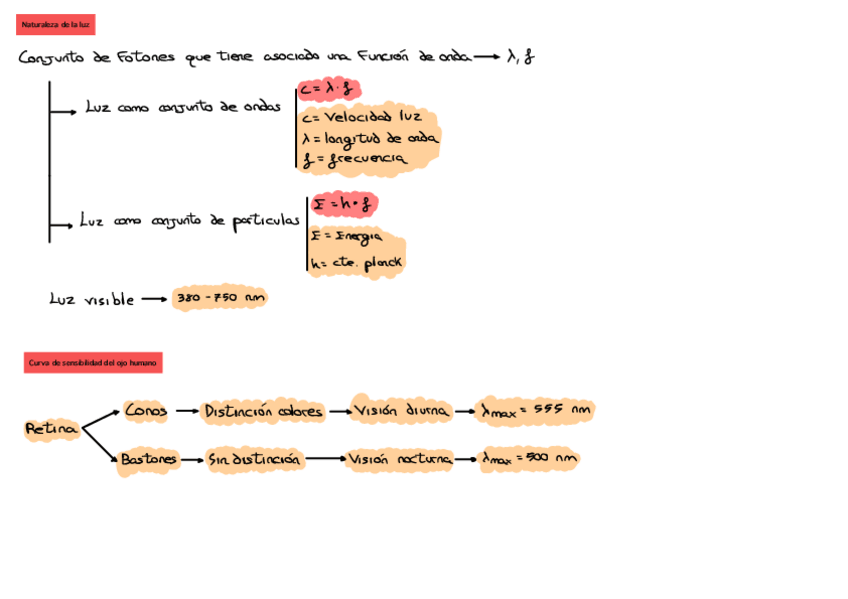 Naturaleza de la luz
Conjunto de Fotones que tiene asociado una Función de onda → λ, f
→ Luz como conjunto de ondas
c = λ · f
c = Velocidad luz
λ = longitud de onda
f = frecuencia
→ Luz como conjunto de partículas
E = h · f
E = Energía
h = cte. planck
Luz visible → 380 - 750 nm
Curva de sensibilidad del ojo humano
Retina
Conos → Distinción colores → Visión diurna → λmax = 555 nm
Bastones → Sin distinción → Visión nocturna → λmax = 500 nm